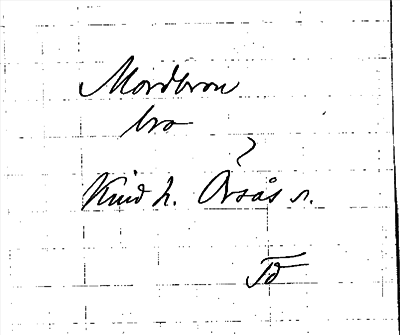 Mordbron
bro
?
Kind h. Örsås s.
Td